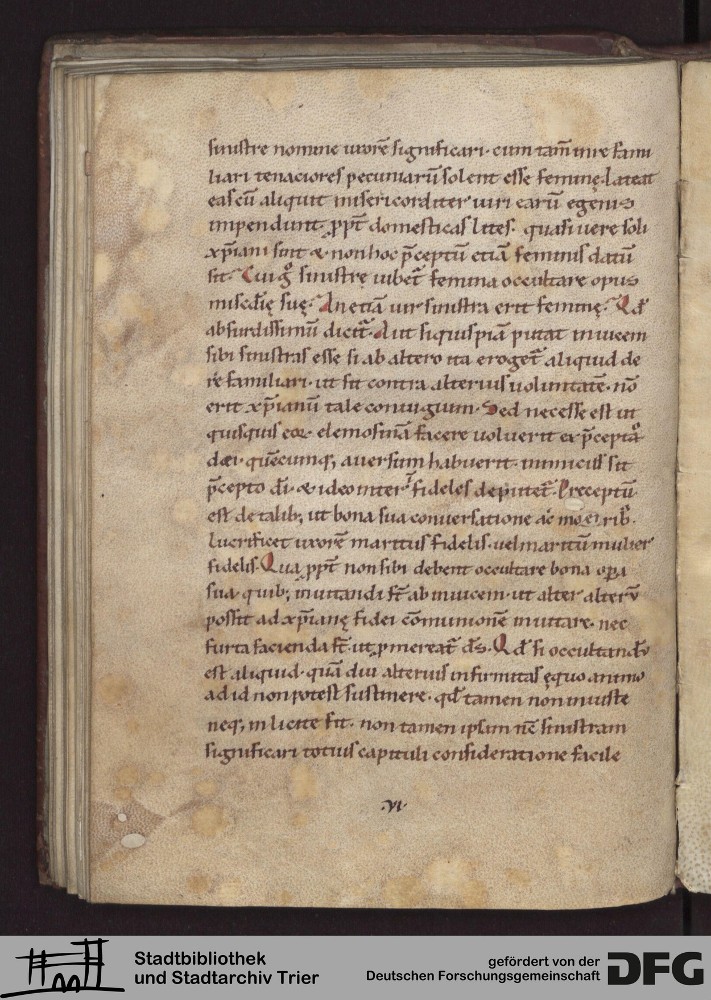 sinistre nomine uxorē significari· cum tam̄ in re fami
liari tenaciores pecuniarū solent esse feminę· Lateat
eas cū aliquit misericorditer uiri earū egenis
impendunt· ꝓpt̄ domesticas lites· quasi uere soli
xp̄iani sint & non hoc p̄ceptū etiā feminis datū
sit· Cui gͦ sinistrę iubet̄ femina occultare opus
misc̄dię suę· An etiā uir sinistra erit feminę· Qd̄
absurdissimū dicit̄· Aut si quispiā putat inuicem
sibi sinistras esse si ab altero ita eroget̄ aliquid de
re familiari· ut sit contra alterius uoluntatē· nō
erit xp̄ianū tale coniugium· Sed necesse est ut
quisquis eoꝝ elemosinā facere uoluerit ex p̄cepto
dei· quēcumq; auersum habuerit· inimicus sit
p̄cepto dī· & ideo inter fideles deputet̄· Preceptū
est de talib; ut bona sua conuersatione ac morib·
lucrificet uxorē maritus fidelis· uel maritū mulier
fidelis· Qua ꝓpt̄ non sibi debent occultare bona oꝑa
sua quib; inuitandi st̄ ab inuicem· ut alter alterū
possit ad xp̄ianę fidei cōmunionē inuitare· nec
furta facienda st̄ ut ꝓmereat̄ ds̄· Qd̄ si occultandū
est aliquid· quā diu alterius infirmitas ęquo animo
ad id non potest sustinere· qd̄ tamen non iniuste
neq; inlicite fit· non tamen ipsam nc̄ sinistram
significari totius capituli consideratione facile
·VI·
Stadtbibliothek
und Stadtarchiv Trier
gefördert von der
Deutschen Forschungsgemeinschaft
DFG